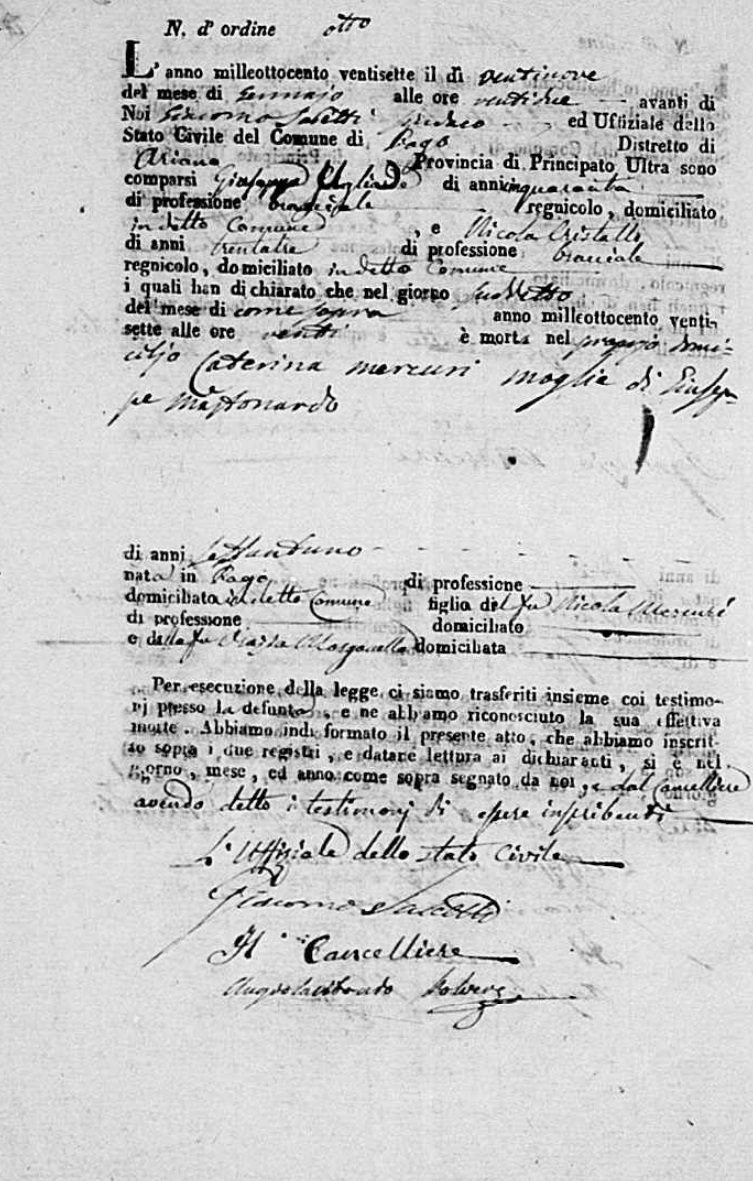 N. d' ordine otto
L' anno milleottocento ventisette il dì ventinove
del mese di Gennajo alle ore ventidue avanti di
Noi Giacomo Sindaco ed Uffiziale dello
Stato Civile del Comune di Pago Distretto di
Ariano Provincia di Principato Ultra sono
comparsi Giuseppe di anni quaranta
di professione bracciale regnicolo, domiciliato
in detto Comune, e Nicola Cristallo
di anni trentatre di professione bracciale
regnicolo, domiciliato in detto Comune
i quali han dichiarato che nel giorno suddetto
del mese di come sopra anno milleottocento venti-
sette alle ore venti è morta nel proprio domi-
cilio Caterina mercuri moglie di Giusep-
pe Mastonardo
di anni settantuno
nata in Pago di professione
domiciliata in detto Comune figlia del fu Nicola Mercuri
di professione domiciliato
e della fu domiciliata
Per esecuzione della legge ci siamo trasferiti insieme coi testimo-
nj presso la defunta, e ne abbiamo riconosciuto la sua effettiva
morte. Abbiamo indi formato il presente atto, che abbiamo inscrit-
to sopra i due registri, e datane lettura ai dichiaranti, si è nel
giorno, mese, ed anno come sopra segnato da noi, e dal Cancelliere
avendo detto i testimonj di essere inscribenti
L' Uffiziale dello stato Civile
Giacomo
Il Cancelliere